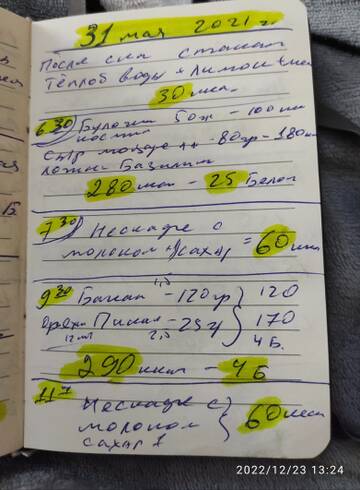 31 мая 2021 г.
После сна стакан
тёплой воды + лимон +
30 ккал.
6³⁰ Булочки 50гр - 100 ккал
сыр моцар - 80гр - 180 ккал
Базилик
280 ккал - 25 Белок
7³⁰ Нескафе с
молоком + сахар = 60 ккал
9³⁰ Банан - 120 гр } 120
орехи Пикан - 25 г } 170
4 Б.
290 ккал - 4 Б
Нескафе с
молоком } 60 ккал
сахар 1
2022/12/23 13:24